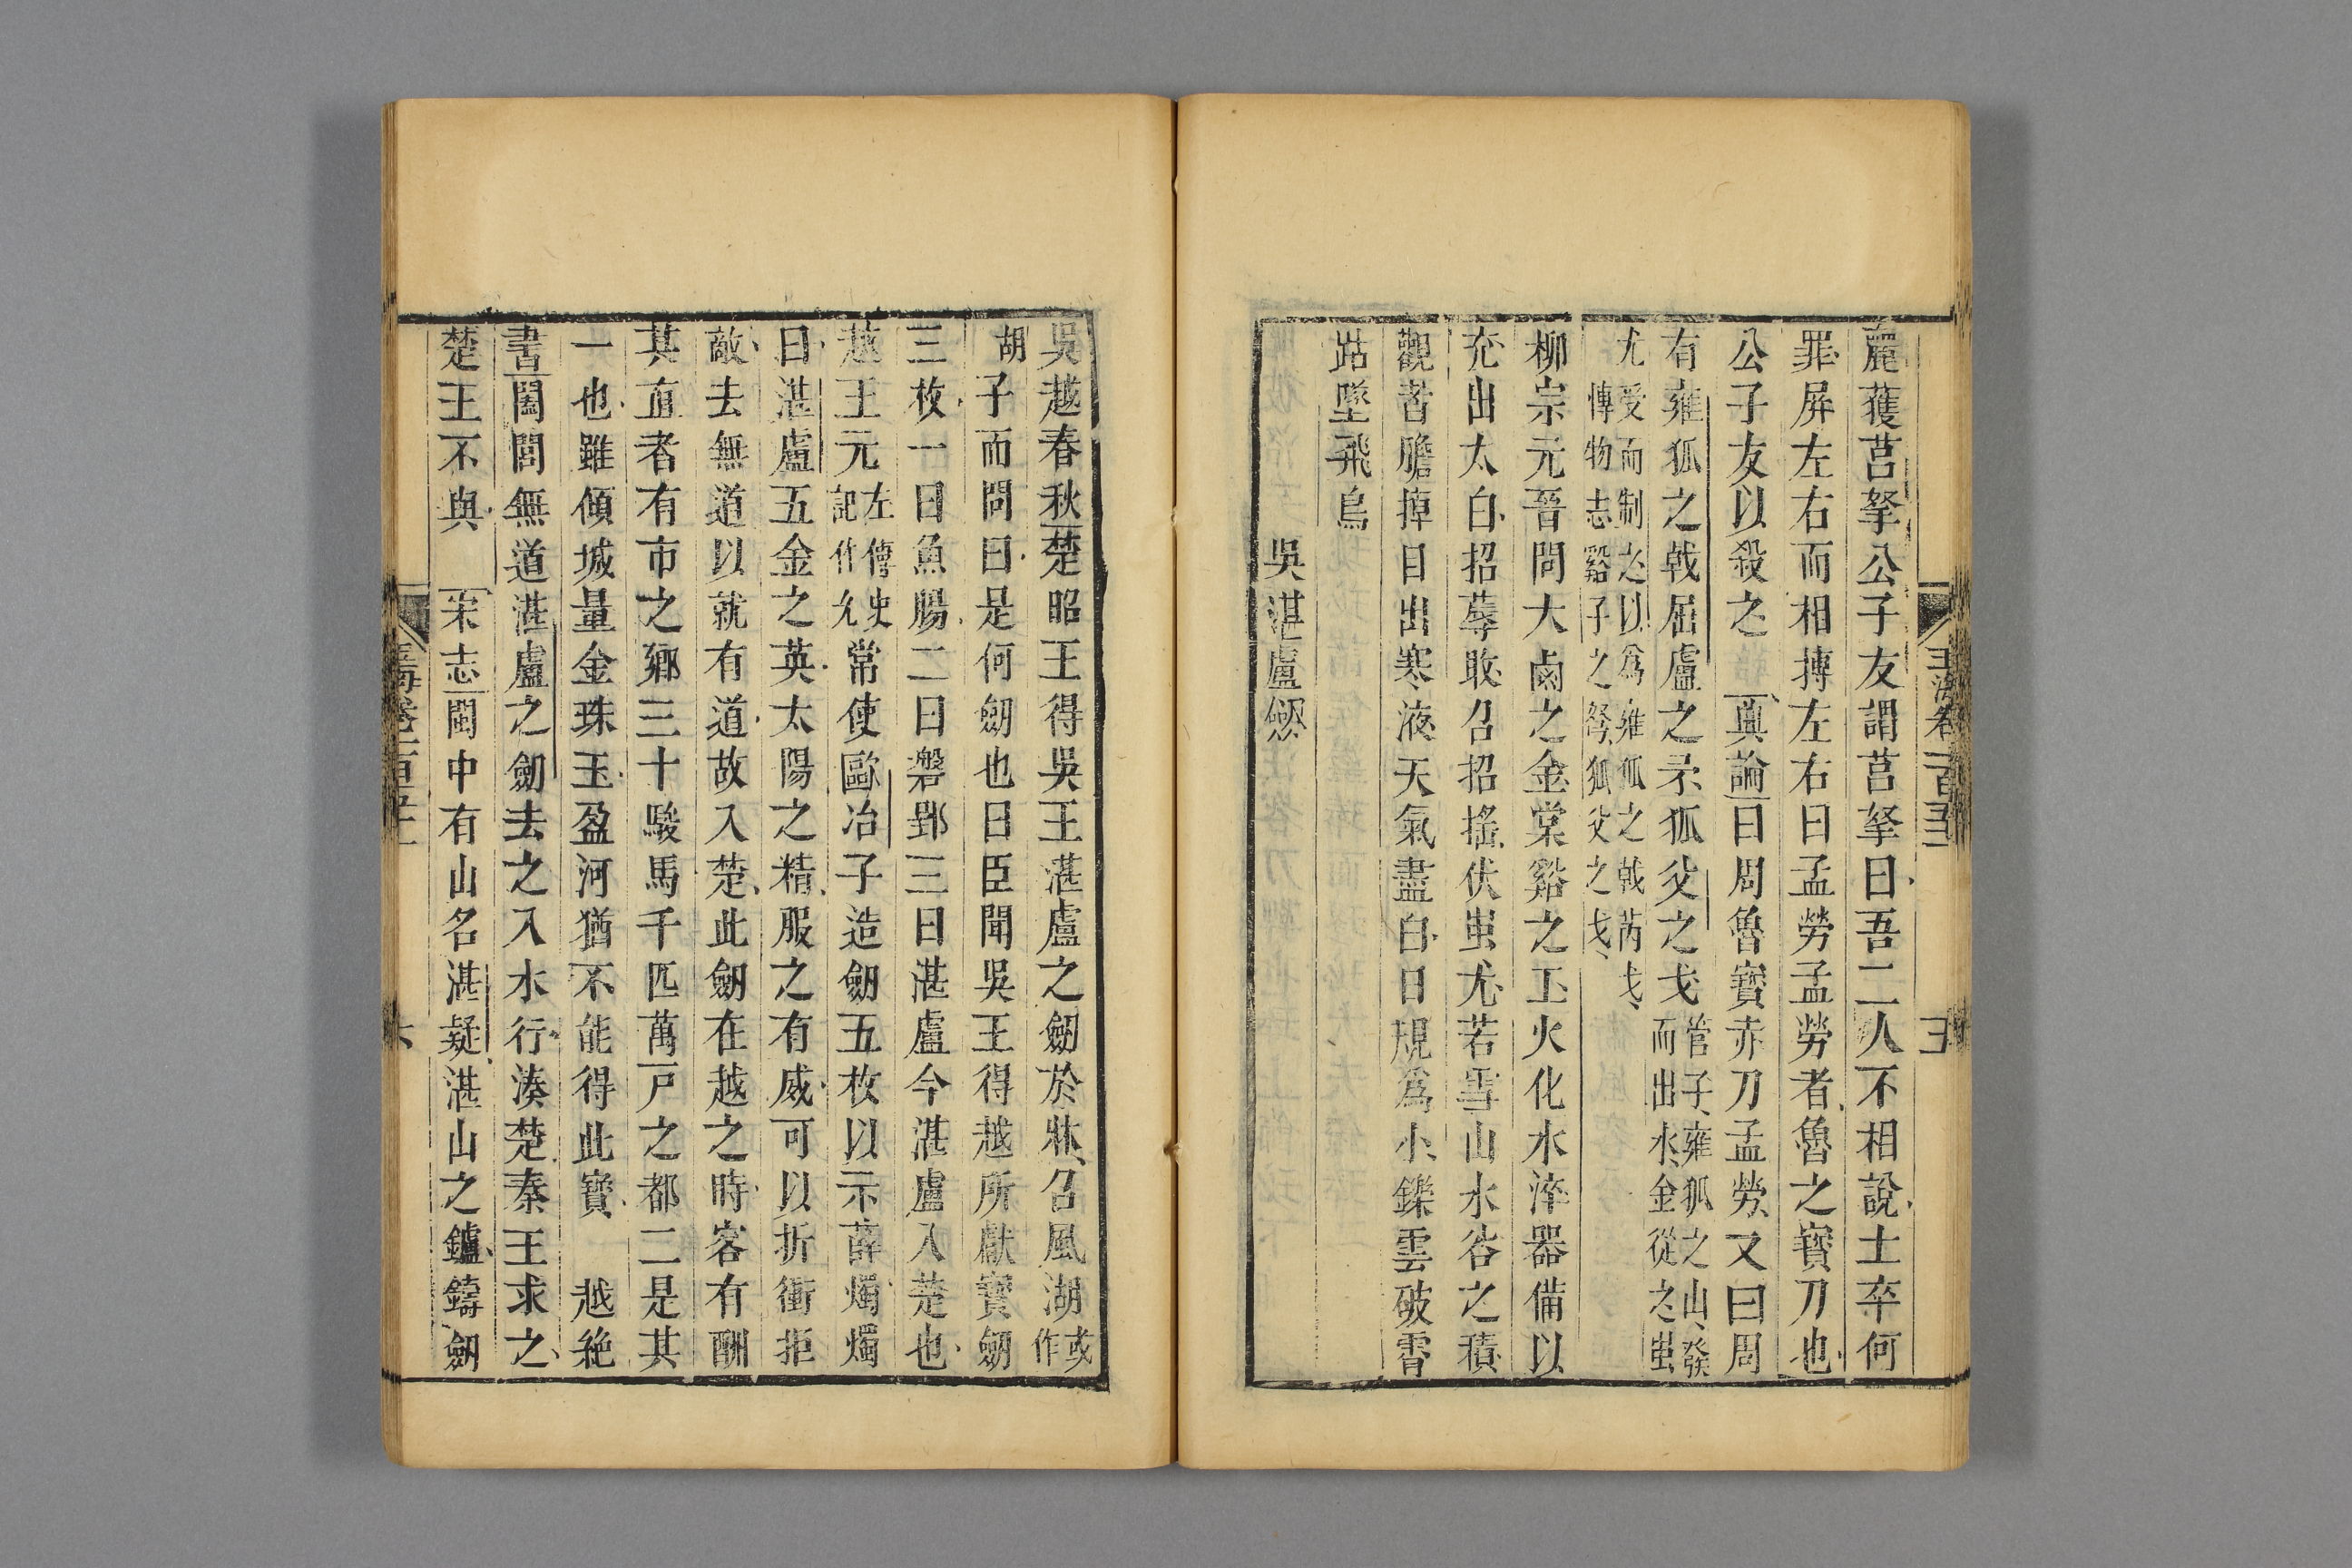 玉海卷一百五十一
五
麗獲莒挐公子友謂莒挐曰吾二人不相說士卒何
罪屏左右而相搏左右曰孟勞孟勞者魯之寶刀也
公子友以殺之 真論曰周魯寶赤刀孟勞又曰周
有雍狐之戟屈盧之矛狐父之戈管子雍狐之山發而出水金從之蚩
尤受而制之以為雍狐之戟芮戈博物志谿子之弩狐父之戈
柳宗元晉問大鹵之金棠谿之工火化水淬器備以
充出太白招蓐收召招搖伏蚩尤若雪山水谷之積
觀者膽掉目出寒液天氣盡白日規爲小鑠雲破霄
跕墜飛鳥
吳湛盧劔
吳越春秋楚昭王得吳王湛盧之劔於牀召風湖或作
胡子而問曰是何劔也曰臣聞吳王得越所獻寶劔
三枚一曰魚腸二曰磐郢三曰湛盧今湛盧入楚也
越王元左傳史記作允常使歐冶子造劔五枚以示薛燭燭
曰湛盧五金之英太陽之精服之有威可以折衝拒
敵去無道以就有道故入楚此劔在越之時客有酬
其直者有市之鄉三十駿馬千匹萬戸之都二是其
一也雖傾城量金珠玉盈河猶不能得此寶 越絶
書闔閭無道湛盧之劔去之入水行湊楚秦王求之
楚王不與 宋志閩中有山名湛疑湛山之鑪鑄劔
玉海卷一百五十一
六